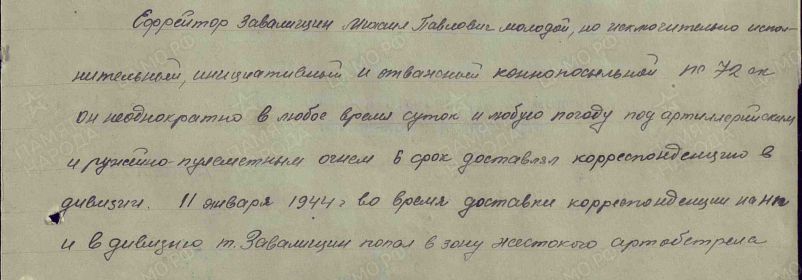 Ефрейтор Завалищин Михаил Павлович молодой, но исключительно испол-
нительный, инициативный и отважный коннопосыльный по 72 ск
Он неоднократно в любое время суток и любую погоду под артиллерийским
и ружейно-пулеметным огнем в срок доставлял корреспонденцию в
дивизии. 11 января 1944 г во время доставки корреспонденции на НП
и в дивизию т. Завалищин попал в зону жестокого артобстрела